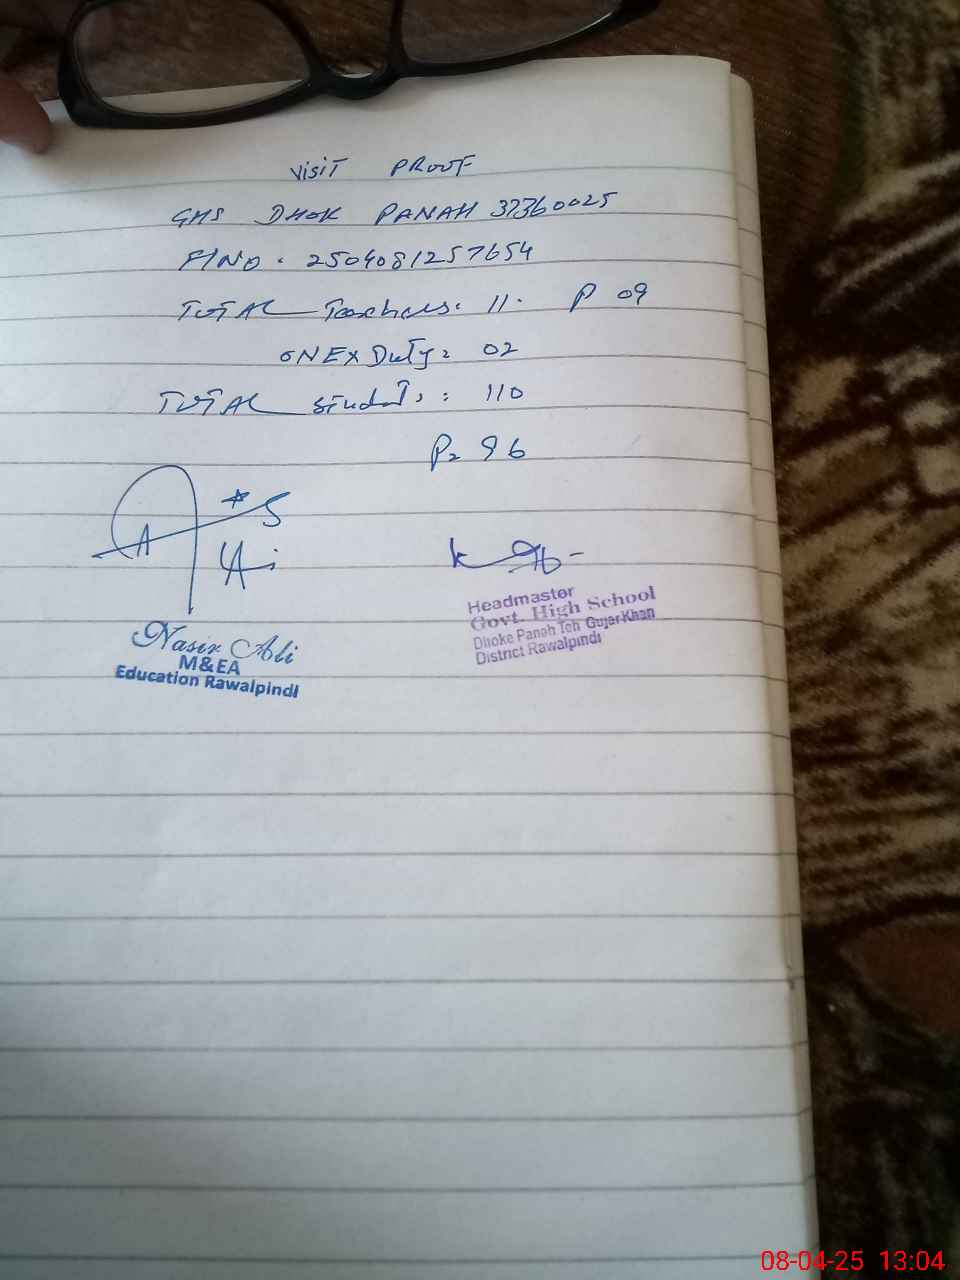 VISIT PROOF
GHS DHOK PANAH 37360025
F/NO. 2504081257654
TOTAL Teachers. 11. P 09
ON EX Duty= 02
TOTAL students: 110
P= 96
Nasir Ali
M&EA
Education Rawalpindi
Headmaster
Govt. High School
Dhoke Panah Teh Gujar Khan
District Rawalpindi
08-04-25 13:04